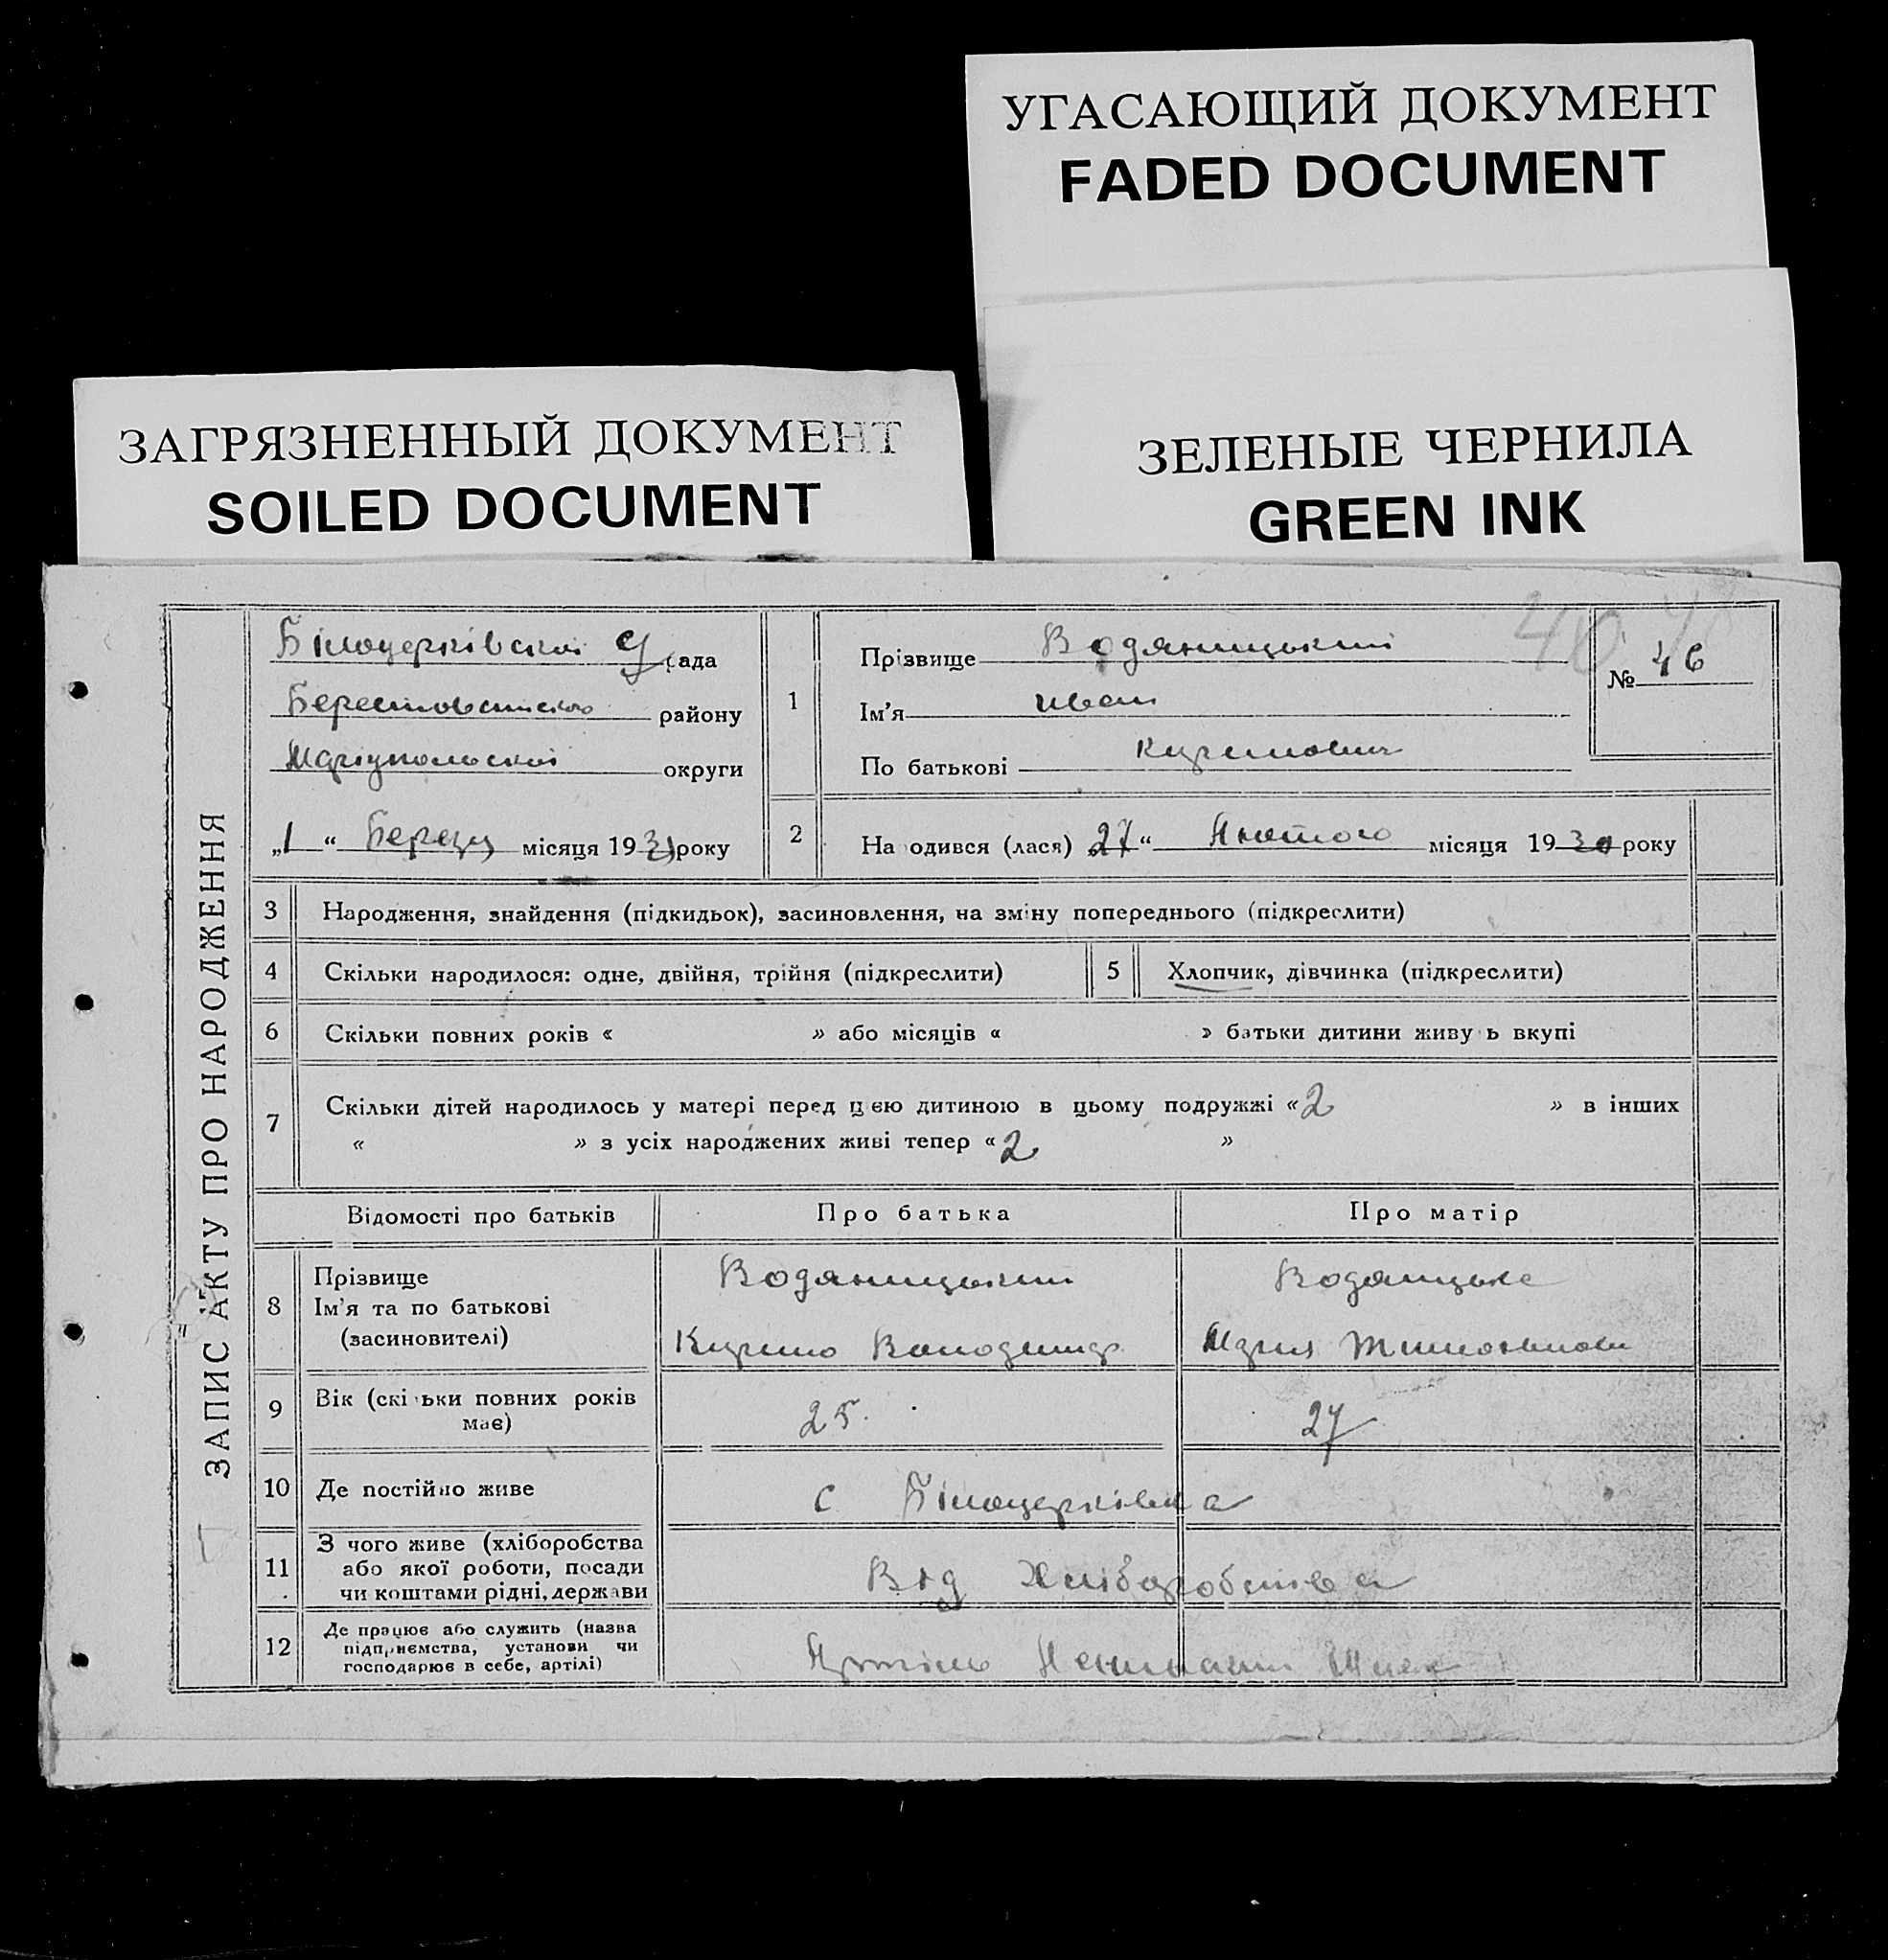 УГАСАЮЩИЙ ДОКУМЕНТ
FADED DOCUMENT
ЗАГРЯЗНЕННЫЙ ДОКУМЕНТ
SOILED DOCUMENT
ЗЕЛЕНЫЕ ЧЕРНИЛА
GREEN INK
ЗАПИС АКТУ ПРО НАРОДЖЕННЯ
Білоцерківської С/рада
району
Маріупольської округи
„1“ Березня місяця 1930 року
1 Прізвище Водяницький
Ім'я Иван
По батькові Кирилович
40
№ 46
2 Народився (лася) „27“ Лютого місяця 1930 року
3 Народження, знайдення (підкидьок), засиновлення, на зміну попереднього (підкреслити)
4 Скільки народилося: одне, двійня, трійня (підкреслити) 5 Хлопчик, дівчинка (підкреслити)
6 Скільки повних років « » або місяців « » батьки дитини живуть вкупі
7 Скільки дітей народилось у матері перед цією дитиною в цьому подружжі «2 » в інших
« » з усіх народжених живі тепер «2 »
Відомості про батьків Про батька Про матір
8 Прізвище Водяницький Водяницька
Ім'я та по батькові
(засиновителі) Кирило Володимир Мария
9 Вік (скільки повних років
має) 25 27
10 Де постійно живе с. Білоцерківка
11 З чого живе (хліборобства
або якої роботи, посади
чи коштами рідні, держави Від Хліборобства
12 Де працює або служить (назва
підприємства, установи чи
господарює в себе, артілі)